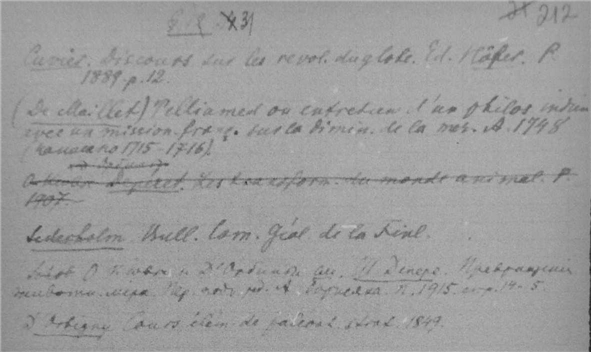 212
Cuvier. Discours sur les revol. du globe. Ed. Höfer. P.
1889. p. 12.
(De Maillet) Telliamed ou entretien d'un philos. indien
avec un mission. franç. sur la dimin. de la mer. A. 1748
(написано 1715-1716).
Depéret. Les transform. du monde animal. P.
1907.
Sederholm. Bull. Com. Géol. de la Finl.
О и Д'Орбиньи см. Ш. Депере. Превращения
животн. мира. Пер. под ред. А. Борисяка П. 1915. стр. 14-5.
D'Orbigny Cours élém. de paléont. strat. 1849.